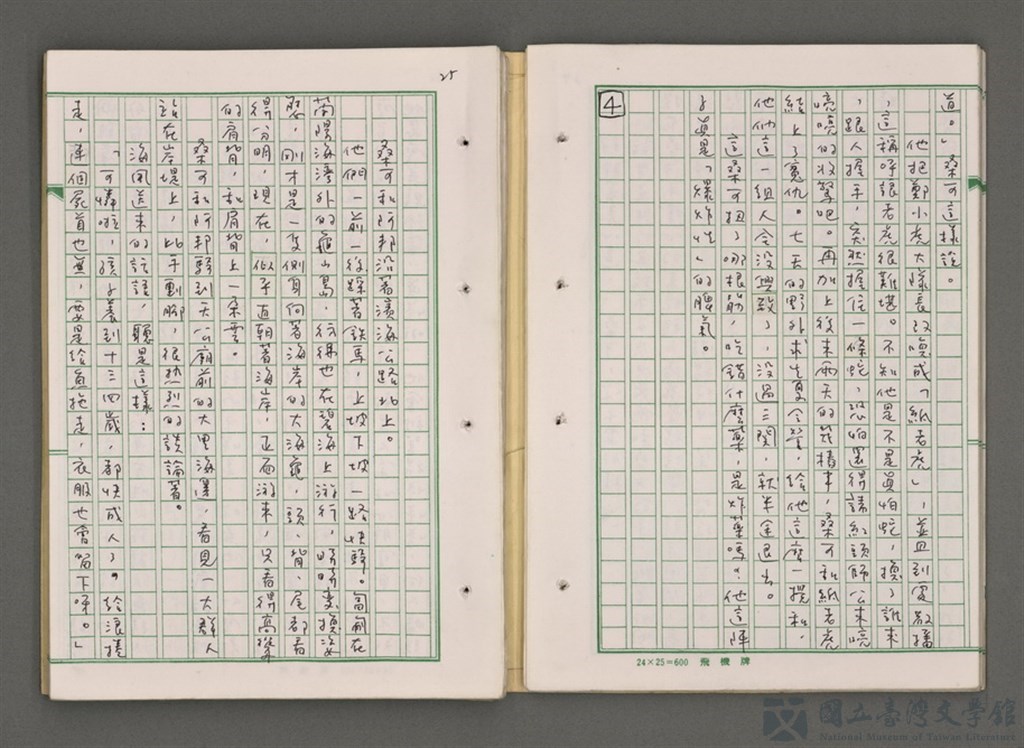 道。」桑可這樣說。
他把鄭小虎大隊長改喚成「紙老虎」，並且到處敬播
，這稱呼讓老虎很難堪。不知他是不是真怕蛇，換了誰來
，跟人握手，突然握住一條蛇，恐怕還得請紅頭師公來嗚
嗚嗚的收驚吧。再加上後來兩天的幾樁事，桑可和紙老虎
結上了冤仇。七天的野外求生夏令營，給他這麼一攪和，
他們這一組人全沒興致了，沒過三關，就半途退出。
這桑可扭了哪根筋，吃錯什麼藥，是炸藥嗎？他這陣
子真是「爆炸性」的脾氣。
4
24×25=600 飛機牌
25
桑可和阿邦沿著濱海公路北上。
他們一前一後踩著鐵馬，上坡下坡一路快騎。匍匐在
蘭陽海灣外的龜山島，彷彿也在碧海上游行，時時變換姿
態，剛才是一隻側身向著海岸的大海龜，頭、背、尾都看
得分明，現在，似乎直朝著海岸，正面游來，只看得高聳
的肩背，和肩背上一朵雲。
桑可和阿邦騎到天公廟前的大里海邊，看見一大群人
站在岸堤上，比手劃腳，很熱烈的談論著。
海風送來的話語，聽是這樣：
「可憐啦，孩子養到十三四歲，都快成人了。給浪捲
走，連個屍首也無，要是給魚拖走，衣服也會留下呀。」
國立臺灣文學館
National Museum of Taiwan Literature